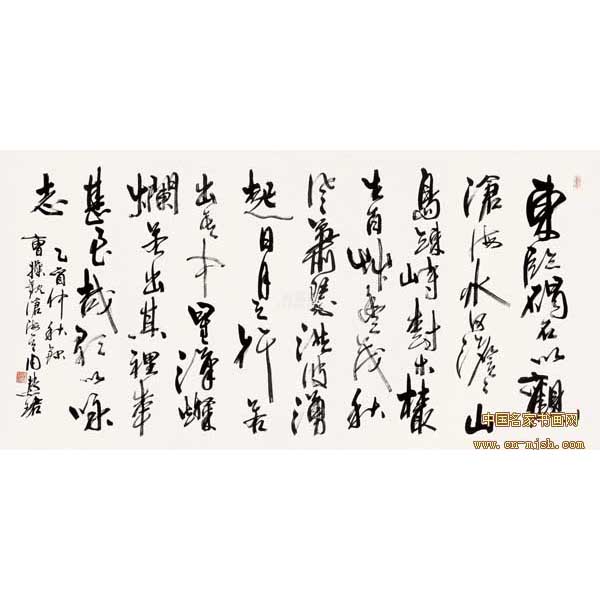 東臨碣石以觀
滄海水何澹々山
島竦峙樹木樷
生百艸豐茂秋
風蕭瑟洪波湧
起日月之行若
出其中星漢燦
爛若出其裡幸
甚至哉歌以詠
志
乙酉仲秋錄
曹操觀滄海 周慧珺
中国名家书画网
www.cn-mjsh.com